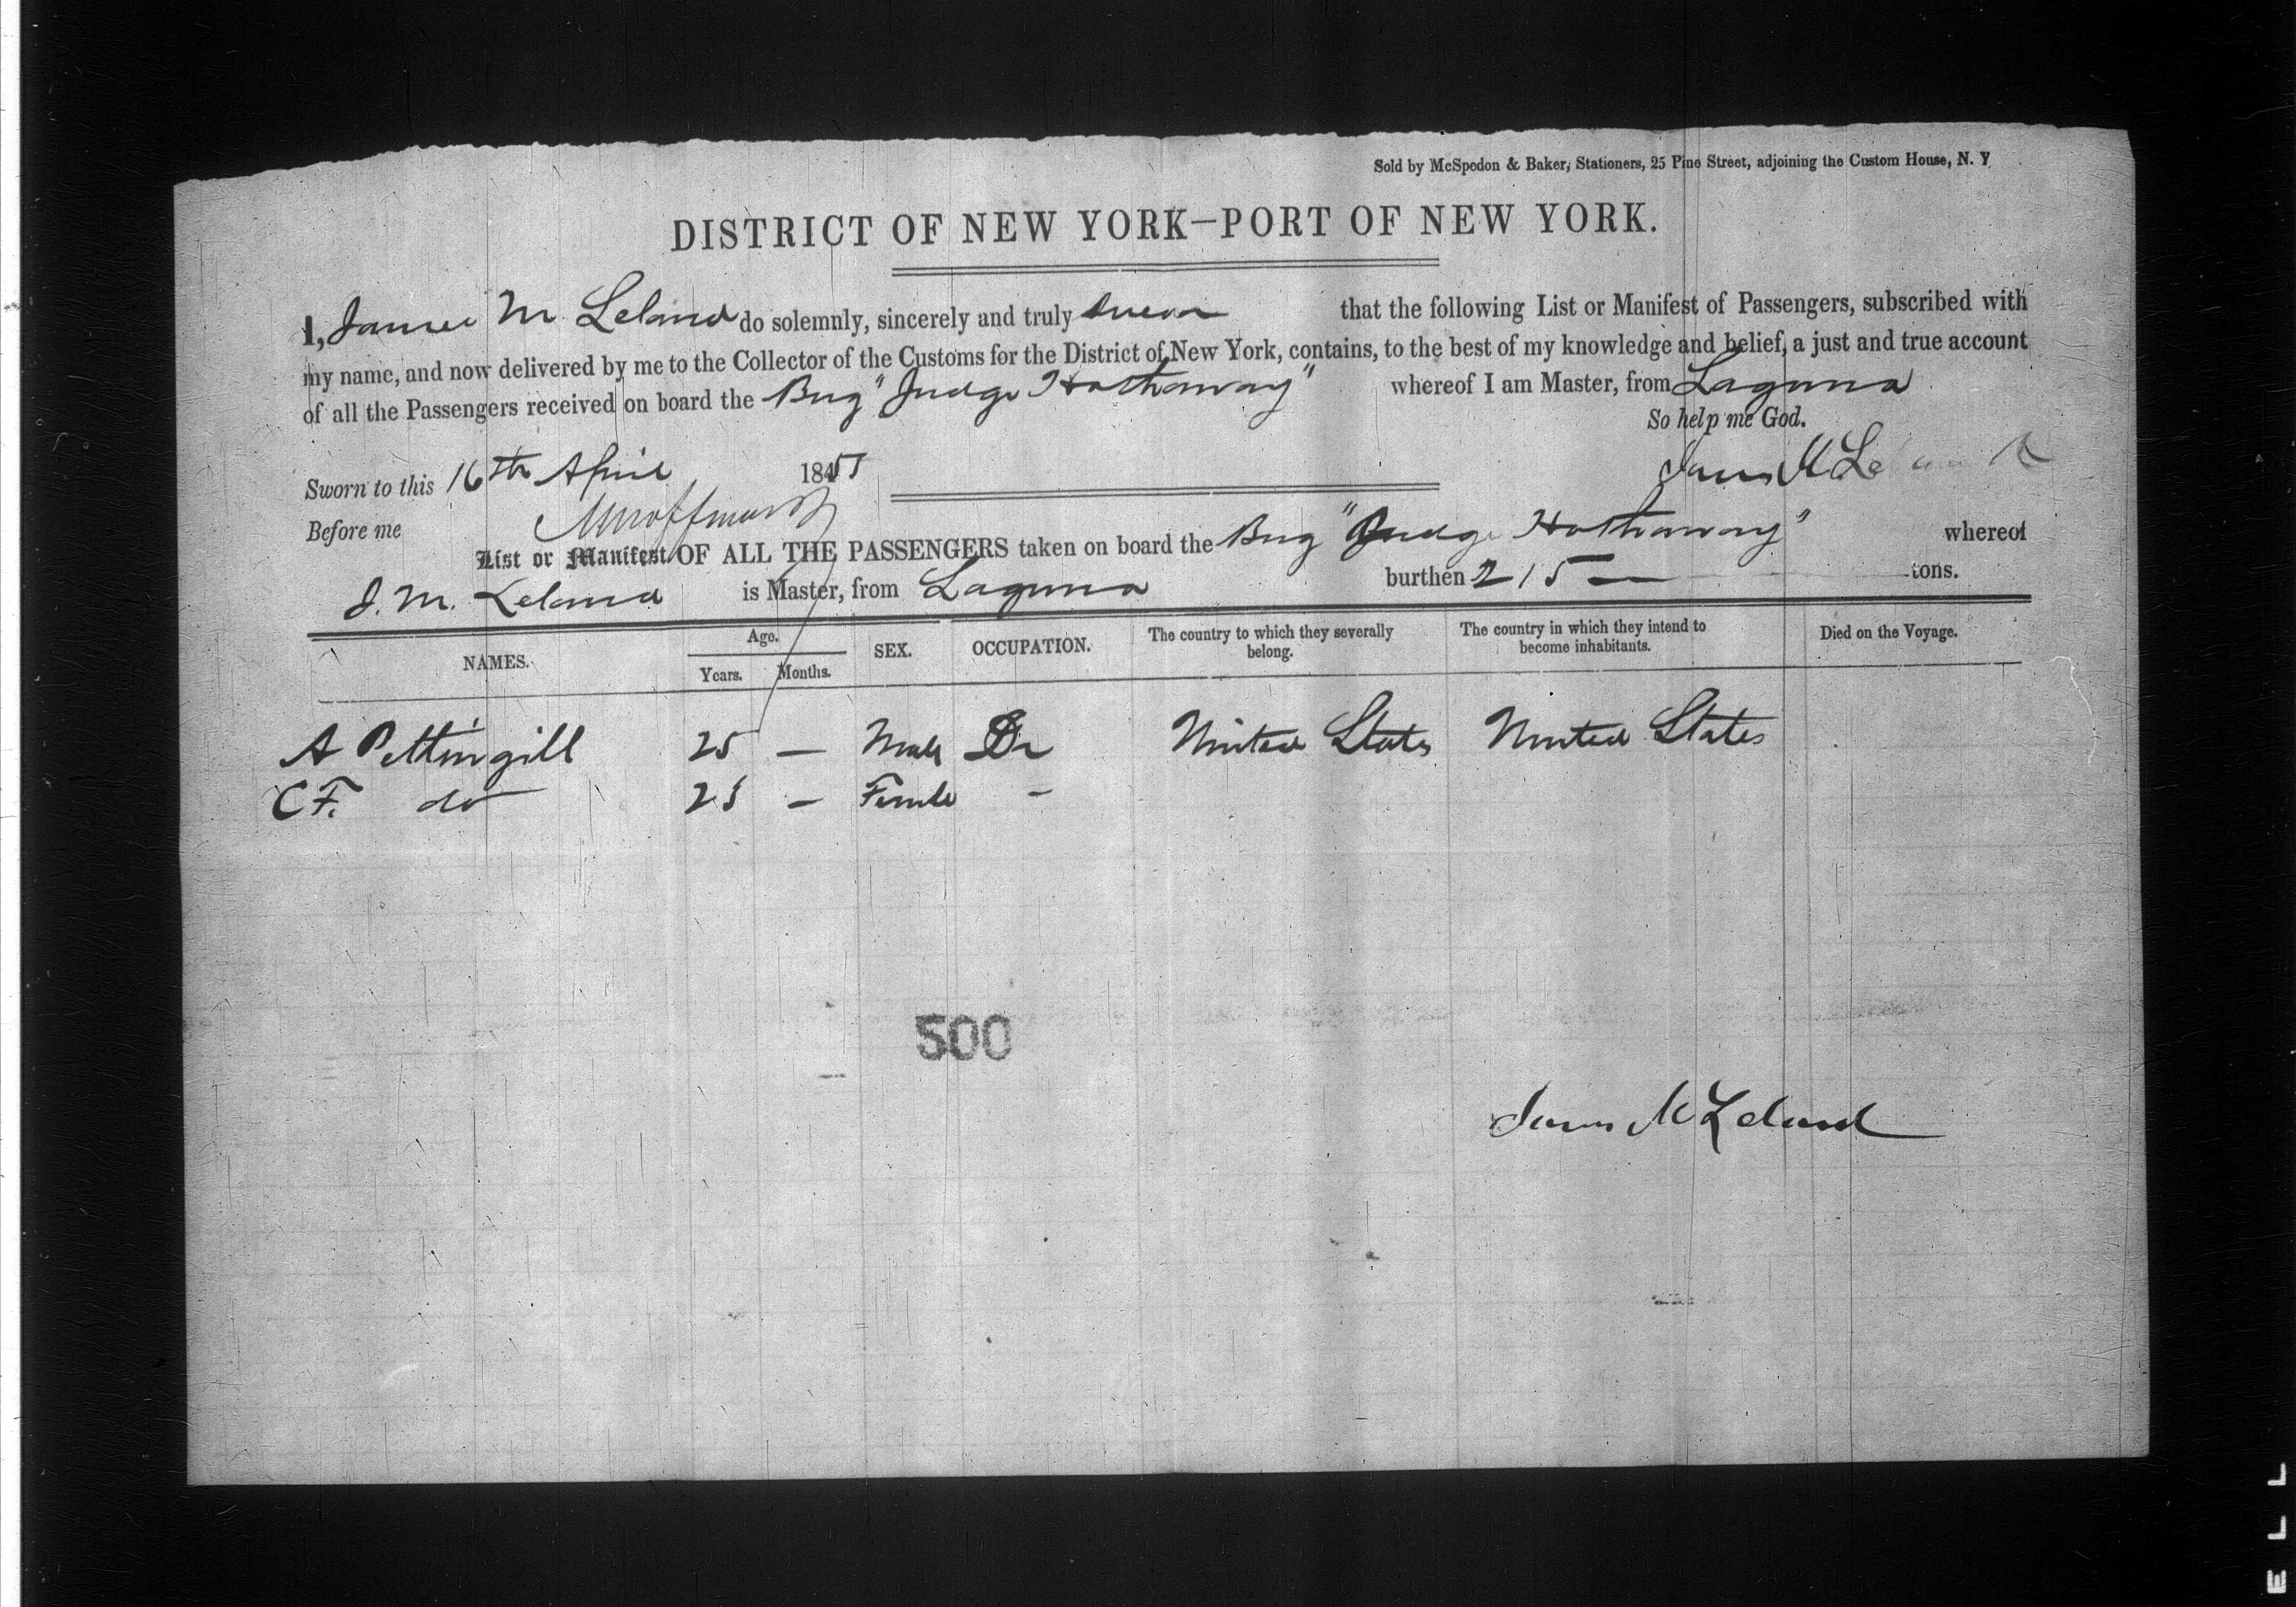 Sold by McSpedon & Baker, Stationers, 25 Pine Street, adjoining the Custom House, N. Y
DISTRICT OF NEW YORK—PORT OF NEW YORK.
I, James M Leland do solemnly, sincerely and truly swear that the following List or Manifest of Passengers, subscribed with
my name, and now delivered by me to the Collector of the Customs for the District of New York, contains, to the best of my knowledge and belief, a just and true account
of all the Passengers received on board the Brig "Judge Hathaway" whereof I am Master, from Laguna
So help me God.
Sworn to this 16th April 1851
James M Leland
Before me
List or Manifest OF ALL THE PASSENGERS taken on board the Brig "Judge Hathaway" whereof
J. M. Leland is Master, from Laguna burthen 215 — tons.
NAMES. Age. Years. Months. SEX. OCCUPATION. The country to which they severally belong. The country in which they intend to become inhabitants. Died on the Voyage.
A Pettingill 25 — Male Dr United States United States
C F. do 23 — Female -
500
James M Leland
ELL